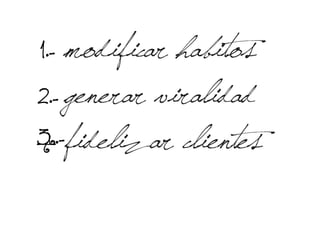 1.- modificar habitos
2.- generar viralidad
3.- fidelizar clientes